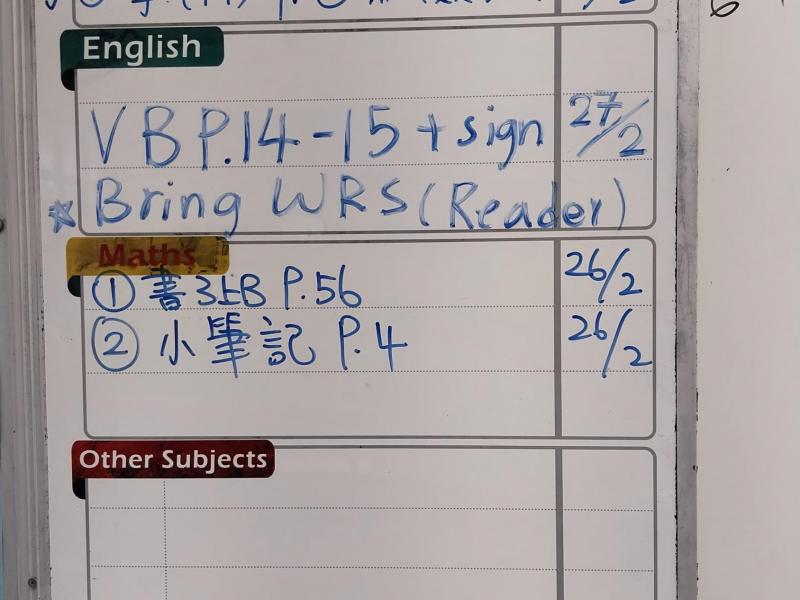 English
VB P.14-15 + sign 27/2
☆ Bring WRS (Reader)
Maths
① 書3上B P.56 26/2
② 小筆記 P.4 26/2
Other Subjects